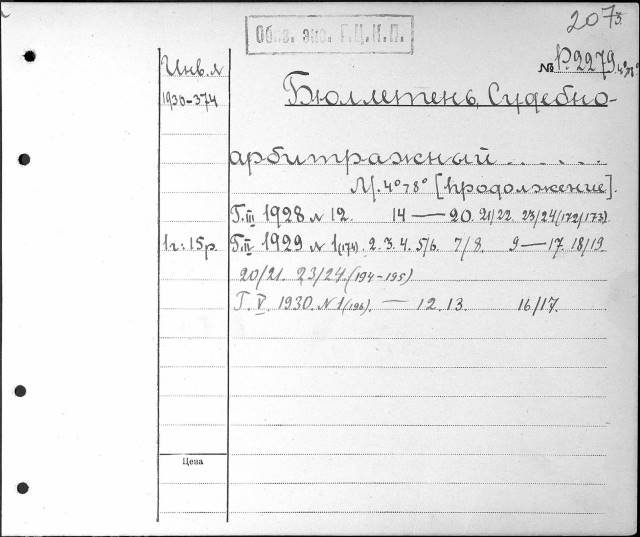 2073
Обяз. экз. Г.Ц.К.П.
Инв. №
№ Р.2279
1930-374
Бюллетень, Судебно-
арбитражный . . . . .
М. 4°78° [продолжение].
Г. III 1928 № 12. 14 — 20. 21/22. 23/24 (172/173).
1 г: 15 р. Г. IV 1929 № 1 (174). 2. 3. 4. 5/6. 7/8. 9 — 17. 18/19.
20/21. 23/24. (194-195)
Г. V. 1930. № 1 (196). — 12. 13. 16/17.
Цена